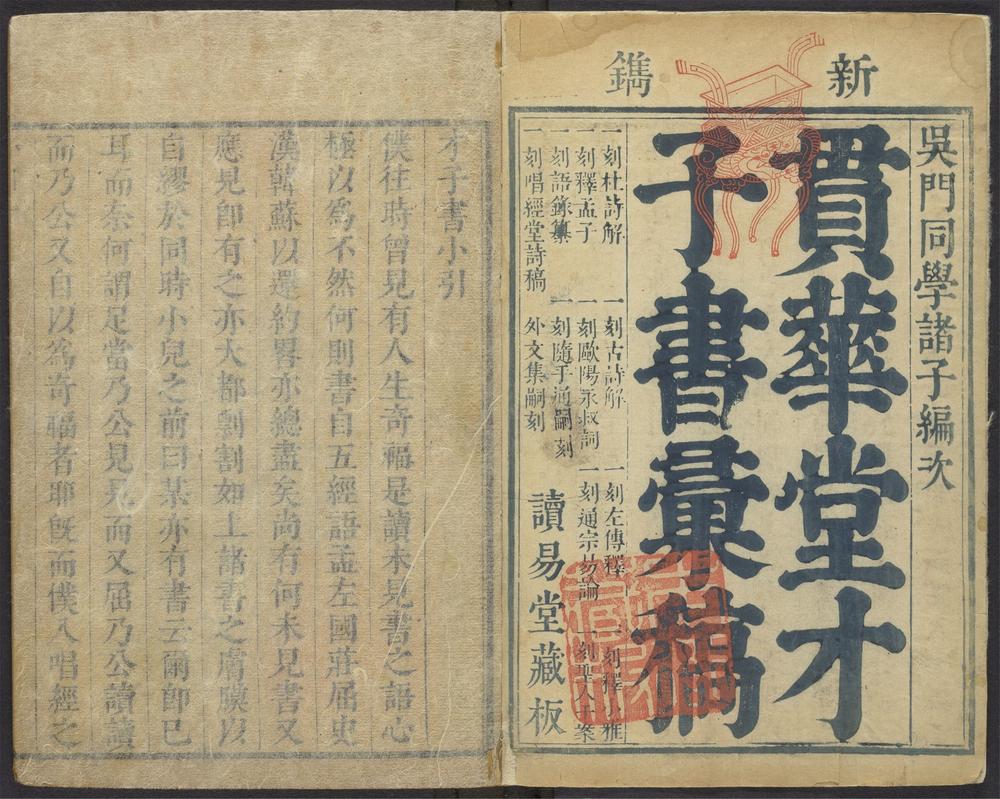 新鐫
吳門同學諸子編次
貫華堂才
子書彙稿
一刻杜詩解 一刻古詩解 一刻左傳釋 一刻釋小雅
一刻釋孟子 一刻歐陽永叔詞 一刻通宗易論 一刻聖人千案
一刻語錄纂 一刻隨手通嗣刻
一刻唱經堂詩稿 外文集嗣刻
讀易堂藏板
才子書小引
僕往時曾見有人生奇福是讀未見書之語心
極以為不然何則書自五經語孟左國莊屈史
漢韓蘇以還約畧亦總盡矣尚有何未見書又
應見卽有之亦大都剽割如上諸書之膚膜以
自繆於同時小兒之前曰某亦有書云爾卽已
耳而柰何謂足當乃公見見而又屈乃公讀讀
而乃公又自以為奇福者耶旣而僕入唱經之